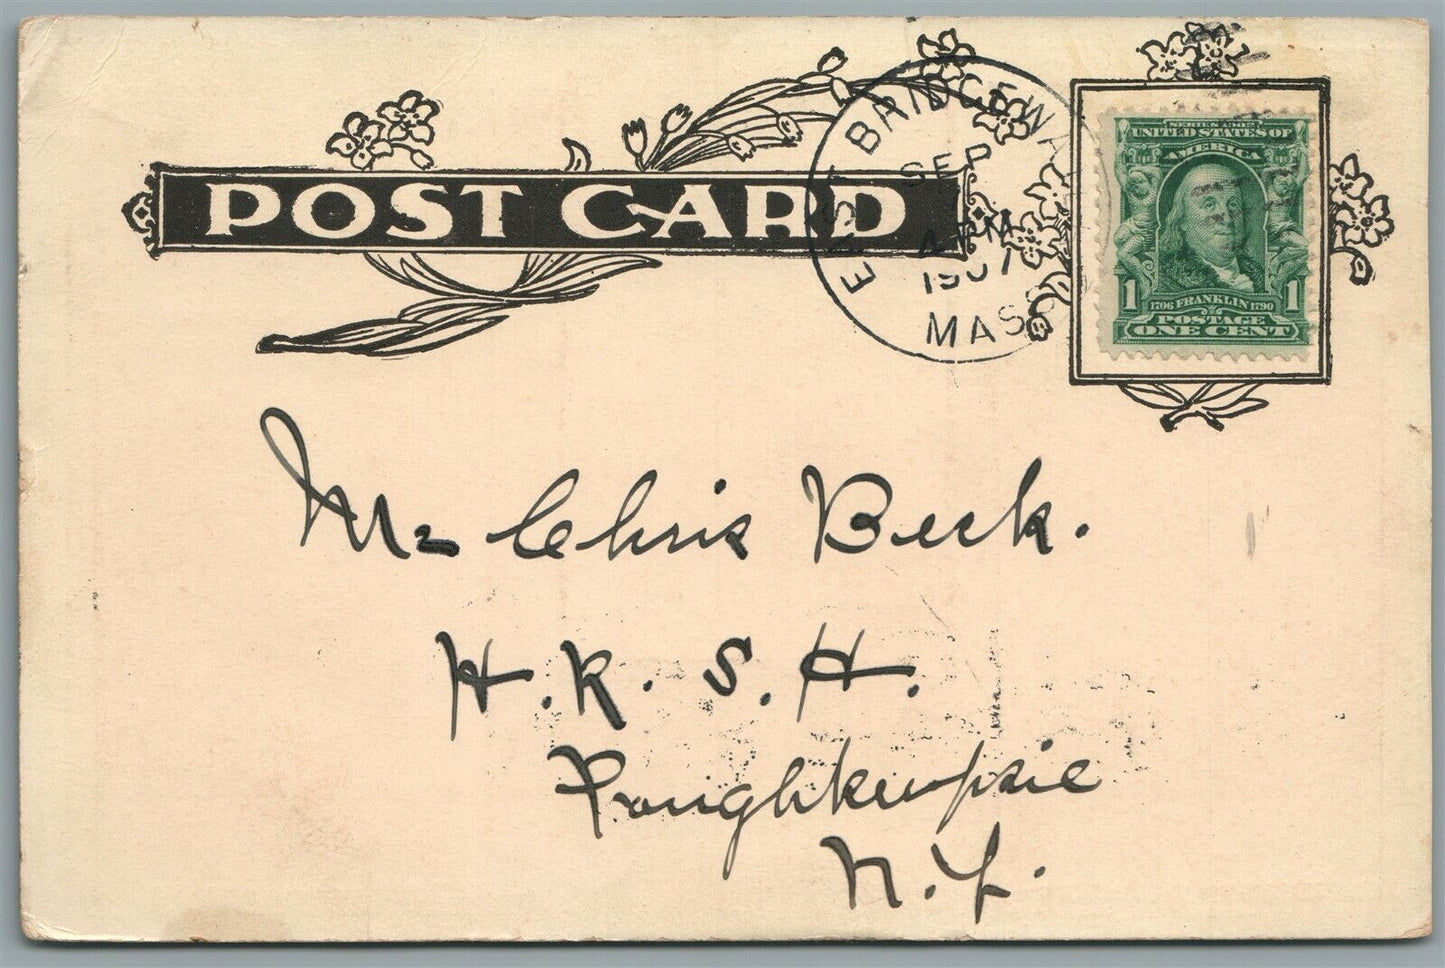 POST CARD
EAST BRIDGEWA
SEP
1907
MASS
SERIES 1902
UNITED STATES OF
AMERICA
1 1706 FRANKLIN 1790 1
POSTAGE
ONE CENT
Mr Chris Beck.
H. R. S. H.
Poughkeepsie
N. Y.